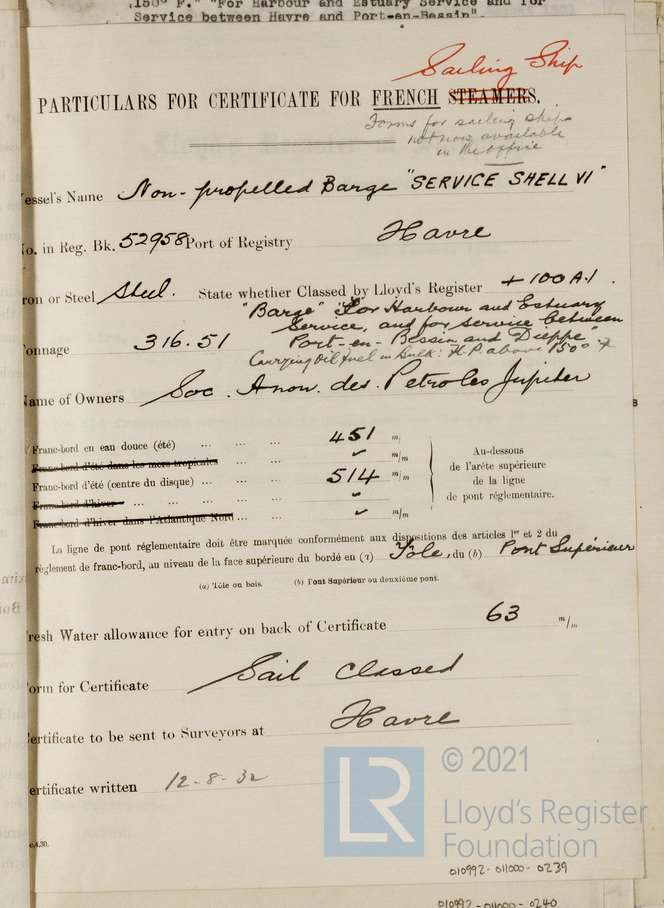 150° F." "For Harbour and Estuary Service and for
Service between Havre and Port-en-Bessin".
Sailing Ship
PARTICULARS FOR CERTIFICATE FOR FRENCH STEAMERS.
Forms for sailing ships
not now available
in the office
essel's Name Non-propelled Barge "SERVICE SHELL VI"
o. in Reg. Bk. 52958 Port of Registry Havre
ron or Steel Steel. State whether Classed by Lloyd's Register + 100 A.1.
"Barge" "For Harbour and Estuary
Service, and for service between
onnage 316.51 Port-en-Bessin and Dieppe"
Carrying Oil fuel in bulk: F.P. above 150° F
ame of Owners Soc. Anon. des. Petroles Jupiter
Franc-bord en eau douce (été) ... ... ... 451 m/
Franc-bord d'été dans les mers tropicales ... ... ✓ m/m
Franc-bord d'été (centre du disque) ... ... ... 514 m/m
Franc-bord d'hiver ... ... ... ... ✓
Franc-bord d'hiver dans l'Atlantique Nord ... ... ✓ m/m
Au-dessous
de l'arête supérieure
de la ligne
de pont réglementaire.
La ligne de pont réglementaire doit être marquée conformément aux dispositions des articles 1er et 2 du
règlement de franc-bord, au niveau de la face supérieure du bordé en (a) Tôle, du (b) Pont Supérieur
(a) Tôle ou bois. (b) Pont Supérieur ou deuxième pont.
resh Water allowance for entry on back of Certificate 63 m/m
orm for Certificate Sail classed
ertificate to be sent to Surveyors at Havre
ertificate written 12-8-32
c.4.30.
LR
© 2021
Lloyd's Register
Foundation
010992-011000-0239
010992-011000-0240